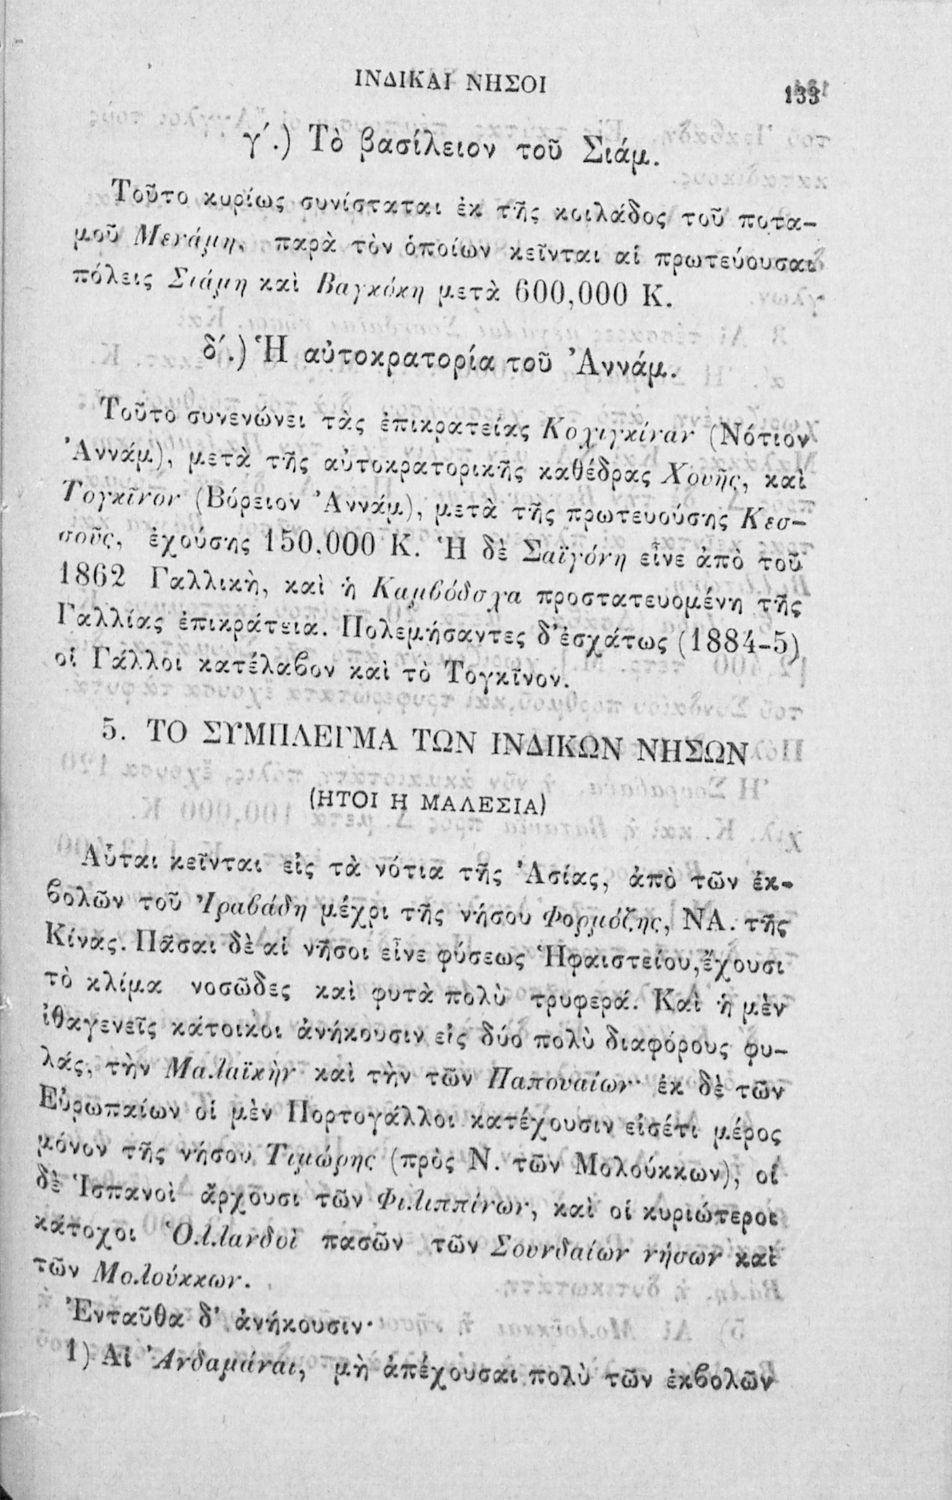 ΙΝΔΙΚΑΙ ΝΗΣΟΙ
133
γ΄.) Τὸ βασίλειον τοῦ Σιάμ.
Τοῦτο κυρίως συνίσταται ἐκ τῆς κοιλάδος τοῦ ποτα-
μοῦ Μενάμη, παρὰ τὸν ὁποίων κεῖνται αἱ πρωτεύουσαι
πόλεις Σιάμη καὶ Βαγκόκη μετὰ 600,000 Κ.
δ΄.) Ἡ αὐτοκρατορία τοῦ Ἀννάμ.
Τοῦτο συνενώνει τὰς ἐπικρατείας Κοχιγκίναν (Νότιον
Ἀννάμ), μετὰ τῆς αὐτοκρατορικῆς καθέδρας Χουῆς, καὶ
Τογκῖνον (Βόρειον Ἀννάμ), μετὰ τῆς πρωτευούσης Κεσ-
σοῦς, ἐχούσης 150,000 Κ. Ἡ δὲ Σαϊγόνη εἶνε ἀπὸ τοῦ
1862 Γαλλικὴ, καὶ ἡ Καμβόδσχα προστατευομένη τῆς
Γαλλίας ἐπικράτεια. Πολεμήσαντες δ'ἐσχάτως (1884-5)
οἱ Γάλλοι κατέλαβον καὶ τὸ Τογκῖνον.
5. ΤΟ ΣΥΜΠΛΕΓΜΑ ΤΩΝ ΙΝΔΙΚΩΝ ΝΗΣΩΝ
(ΗΤΟΙ Η ΜΑΛΕΣΙΑ)
Αὗται κεῖνται εἰς τὰ νότια τῆς Ἀσίας, ἀπὸ τῶν ἐκ-
βολῶν τοῦ Ἰραβάδη μέχρι τῆς νήσου Φορμόζης, ΝΑ. τῆς
Κίνας. Πᾶσαι δὲ αἱ νῆσοι εἶνε φύσεως Ἡφαιστείου, ἔχουσι
τὸ κλίμα νοσῶδες καὶ φυτὰ πολὺ τρυφερά. Καὶ ἡ μὲν
ἰθαγενεῖς κάτοικοι ἀνήκουσιν εἰς δύο πολὺ διαφόρους φυ-
λάς, τὴν Μαλαϊκὴν καὶ τὴν τῶν Παπουαίων· ἐκ δὲ τῶν
Εὐρωπαίων οἱ μὲν Πορτογάλλοι κατέχουσιν εἰσέτι μέρος
μόνον τῆς νήσου Τιμώρης (πρὸς Ν. τῶν Μολούκκων), οἱ
δὲ Ἱσπανοὶ ἄρχουσι τῶν Φιλιππίνων, καὶ οἱ κυριώτεροι
κάτοχοι Ὁλλανδοὶ πασῶν τῶν Σουνδαίων νήσων καὶ
τῶν Μολούκκων.
Ἐνταῦθα δ' ἀνήκουσιν·
1) Αἱ Ἀνδαμάναι, μὴ ἀπέχουσαι πολὺ τῶν ἐκβολῶν